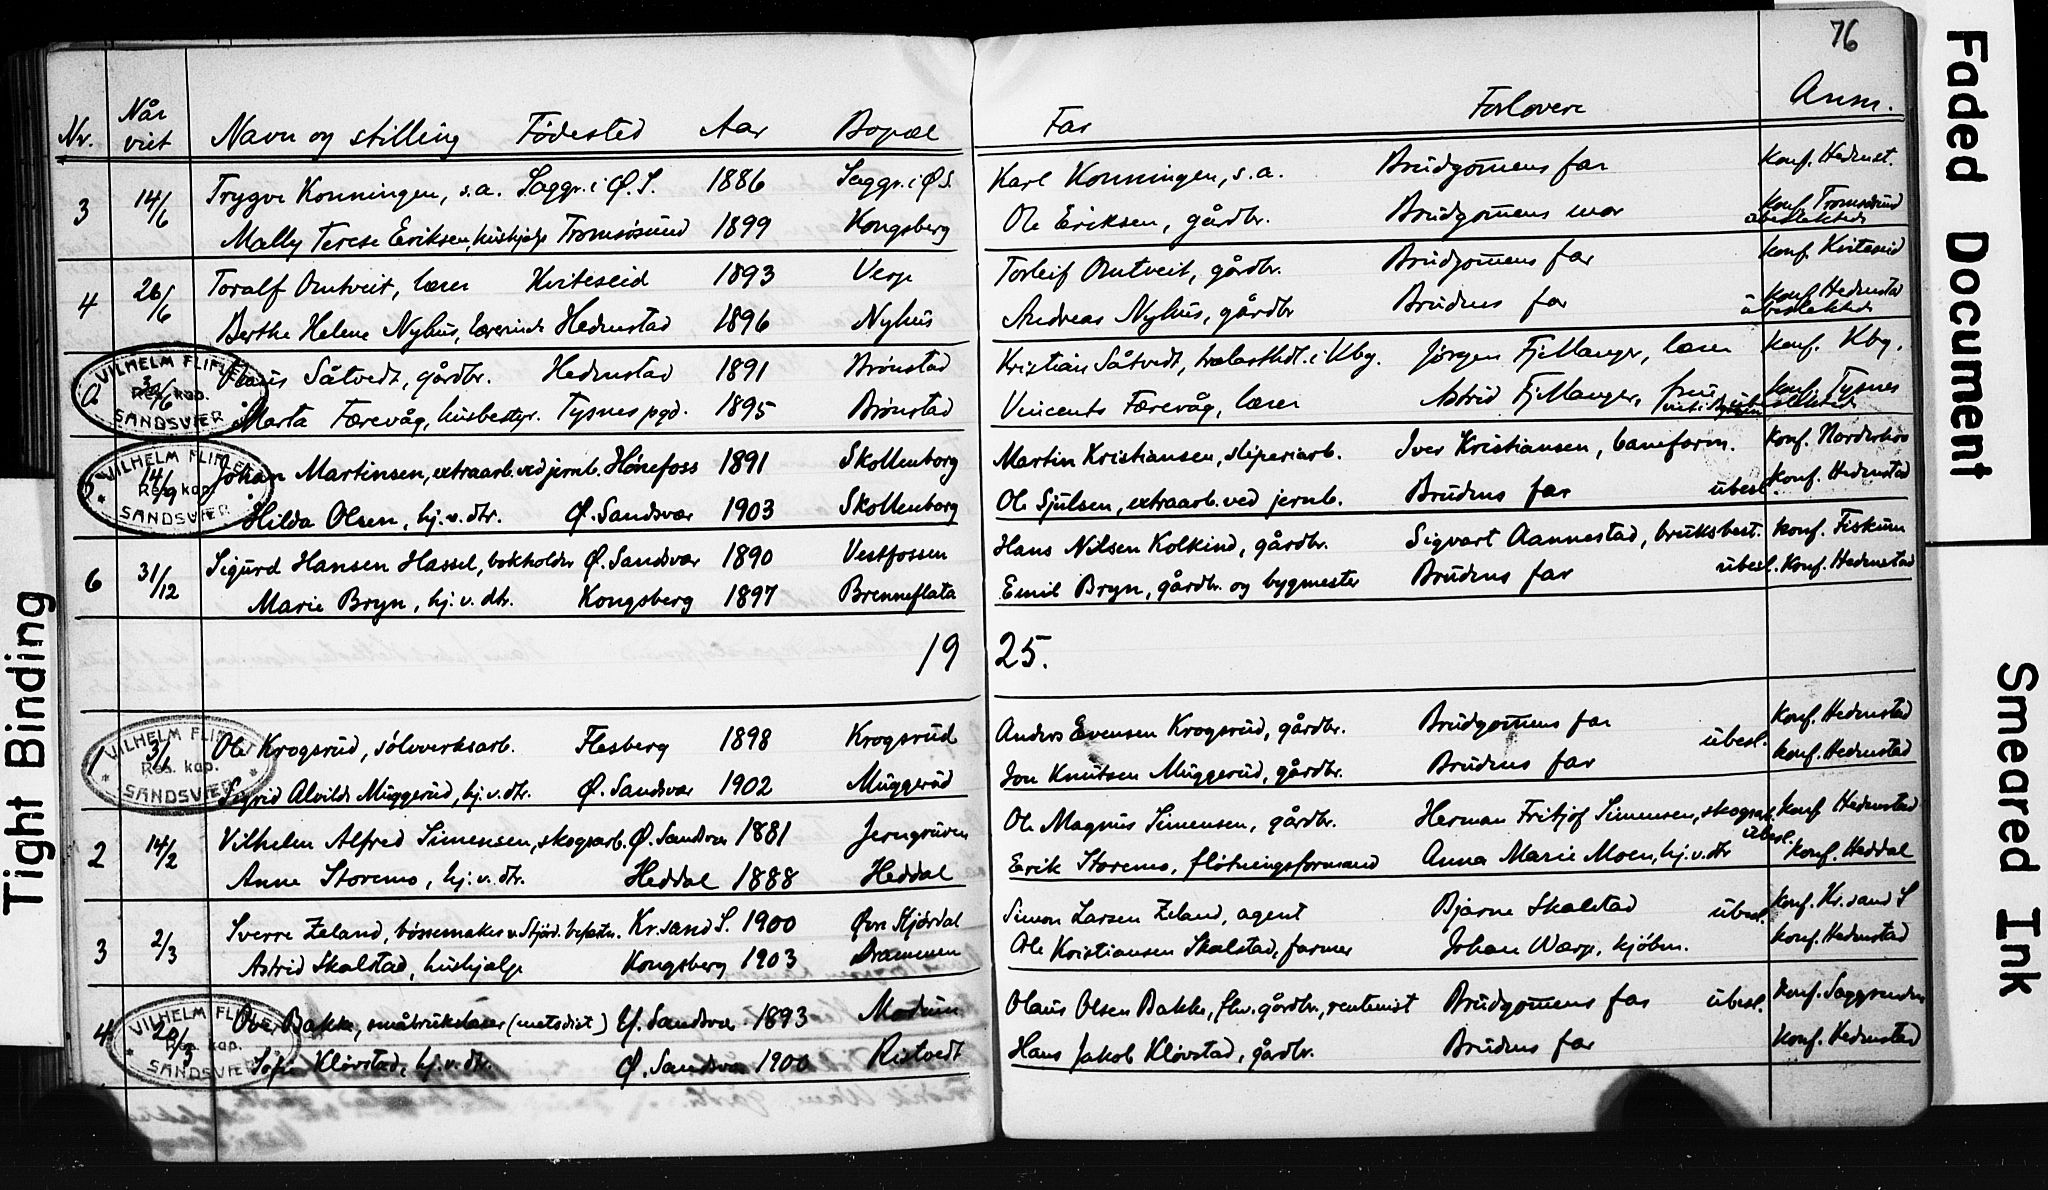 76
Nr. Når viet Navn og stilling Fødested Aar Bopæl Far Forlovere Anm.
3 14/6 Trygve Konningen, s.a. Saggr. i Ø.S. 1886 Saggr. i Ø.S. Karl Konningen, s.a. Brudgom̄ens far Konf. Hedenst.
Mally Terese Eriksen, hushjelp Tromsøsund 1899 Kongsberg Ole Eriksen, gårdbr. Brudgom̄ens mor Konf. Tromsøsund
ubeslektede
4 26/6 Toralf Omtveit, lærer Kviteseid 1893 Veum Torleif Omtveit, gårdbr. Brudgom̄ens far Konf. Kviteseid
Berthe Helene Nyhus, lærerinde Hedenstad 1896 Nyhus Andreas Nyhus, gårdbr Brudens far Konf. Hedenstad
ubeslektede
a 30/6 Såtvedt, gårdbr. Hedenstad 1891 Brønstad Kristian Såtvedt, trælasthdl. i Kbg. Jørgen Fjellanger, lærer Konf. Kbg.
Marta Færevåg, husbestyr. Tysnes pgd. 1895 Brønstad Vincents Færevåg, lærer Astrid Fjellanger, frue Konf. Tysnes
ubeslektede
5 14/9 Johan Martinsen, extraarb. ved jernb. Hønefoss 1891 Skollenborg Martin Kristiansen, sliperiarb. Iver Kristiansen, baneform. Konf. Norderhov
Hilda Olsen, hj. v. dtr. Ø. Sandsvær 1903 Skollenborg Ole Sjulsen, extraarb. ved jernb. Brudens far ubesl. Konf. Hedenstad
6 31/12 Sigurd Hansen Hassel, bokholder Ø. Sandsvær 1890 Vestfossen Hans Nilsen Kolkind, gårdbr. Sigvart Aannestad, bruksbest. Konf. Fiskum
Marie Bryn, hj. v. dtr. Kongsberg 1897 Brenneflata Emil Bryn, gårdbr. og bygmester Brudens far ubesl. Konf. Hedenstad
19 25.
1 3/1 Ole Krogsrud, sølvverksarb. Flesberg 1898 Krogsrud Anders Evensen Krogsrud, gårdbr. Brudgom̄ens far Konf. Hedenstad
Sigrid Alvilde Muggerud, hj. v. dtr. Ø. Sandsvær 1902 Muggerud Jon Knutsen Muggerud, gårdbr. Brudens far ubesl. Konf. Hedenstad
2 14/2 Vilhelm Alfred Simensen, skogsarb. Ø. Sandsvær 1881 Jerngruven Ole Magnus Simensen, gårdbr. Herman Fritjof Simensen, skogsarb. Konf. Hedenstad
Anne Storemo, hj. v. dtr. Heddal 1888 Heddal Erik Storemo, fløtningsformand Anna Marie Moen, hj. v. dtr ubesl. Konf. Heddal
3 2/3 Sverre Zeland, bøssemaker v. Stjørd. befæstn. Kr.sand S. 1900 Øvre Stjørdal Simon Larsen Zeland, agent Bjarne Skalstad ubesl. Konf. Kr.sand S
Astrid Skalstad, hushjælp Kongsberg 1903 Drammen Ole Kristiansen Skalstad, farmer Johan Warp, kjøbm. Konf. Hedenstad
4 20/3 Ove Bakke, småbrukslærer Ef. Sandsvær 1893 Modum Olaus Olsen Bakke, fhv. gårdbr., rentenist Brudgom̄ens far ubesl. Konf. Saggrenden
Sofie Kløvstad, hj. v. dtr. Ø. Sandsvær 1900 Ristvedt Hans Jakob Kløvstad, gårdbr. Brudens far Konf. Hedenstad
VILHELM FLIFLET
Res. kap.
SANDSVÆR
VILHELM FLIFLET
Res. kap.
SANDSVÆR
VILHELM FLIFLET
Res. kap.
SANDSVÆR
VILHELM FLIFLET
Res. kap.
SANDSVÆR
Tight Binding
Faded Document
Smeared Ink